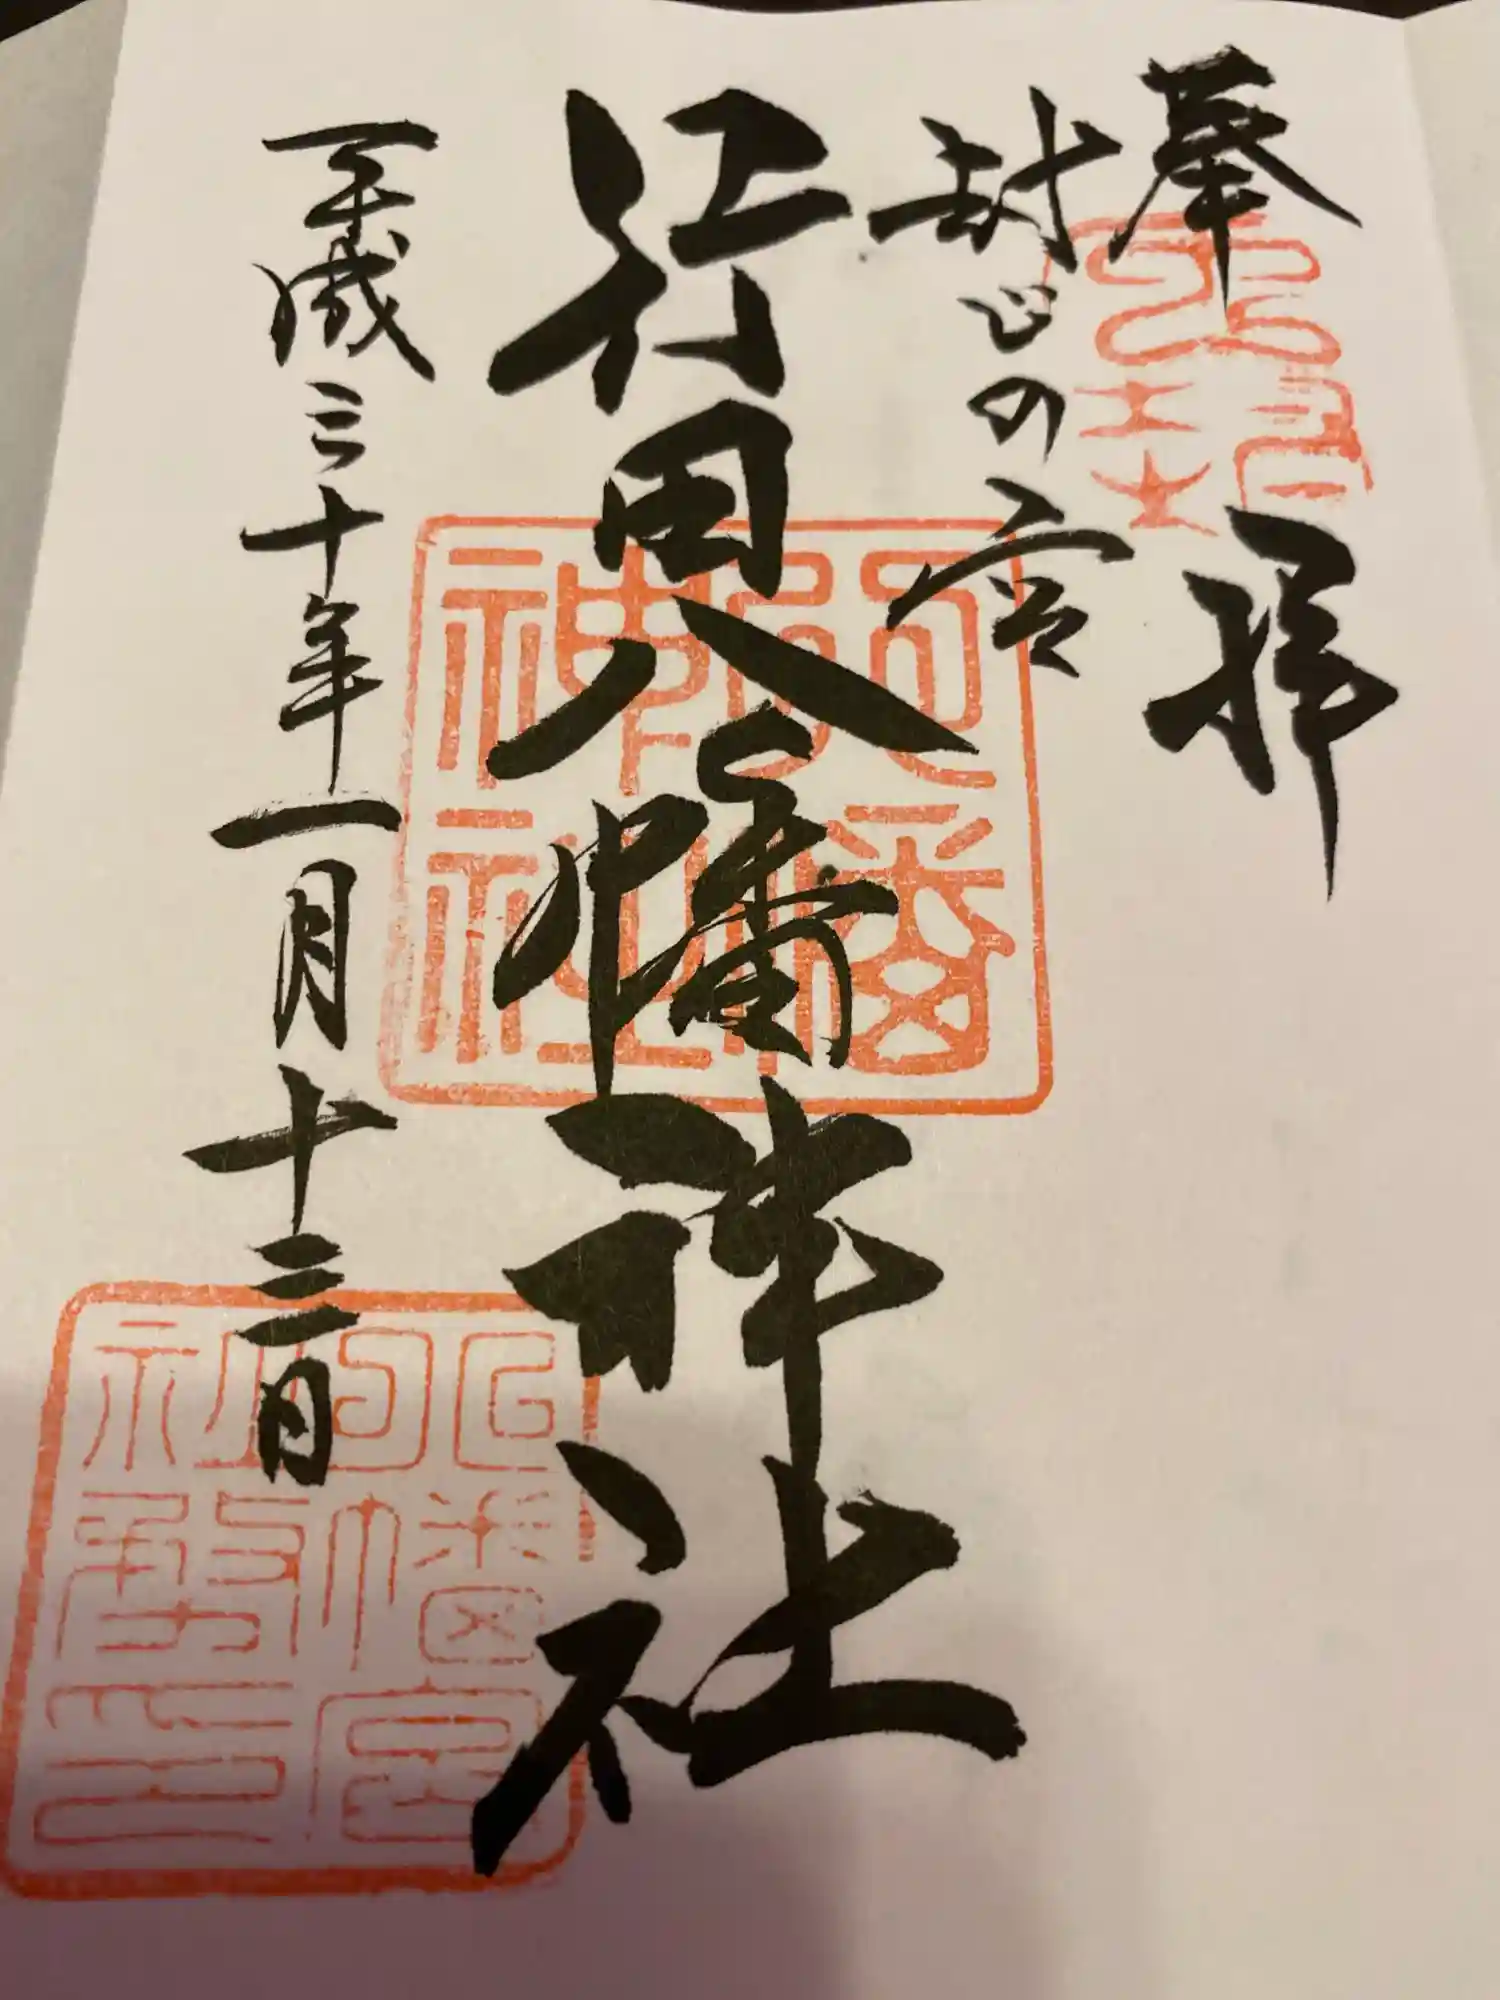 奉拝
封じの宮
行田八幡神社
平成三十年一月十三日
八幡神社
八幡宮社務印